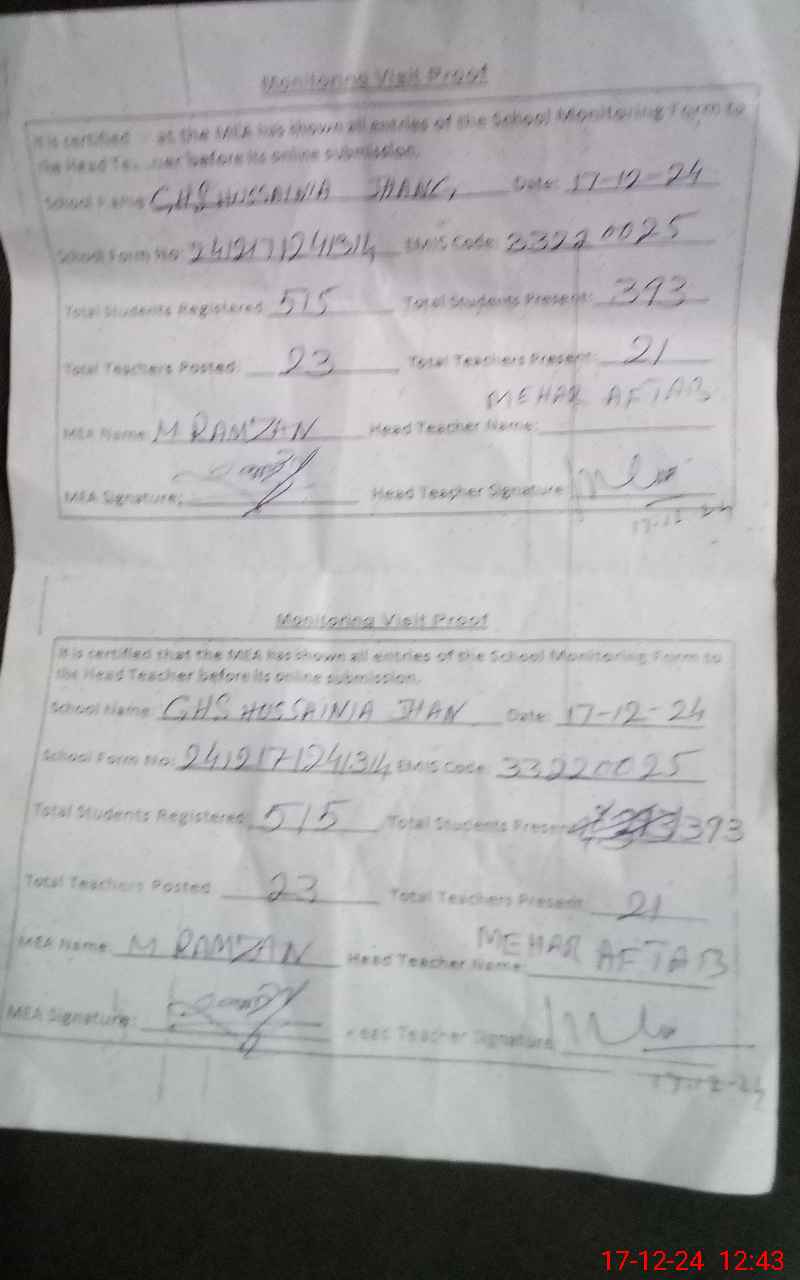 Monitoring Visit Proof
It is certified at the MEA has shown all entries of the School Monitoring Form to
the Head Te ner before its online submission.
School Name: GHS HUSSAINIA JHANG, Date: 17-12-24
School Form No: 2412171241314 EMIS Code: 33220025
Total Students Registered: 515 Total Students Present: 393
Total Teachers Posted: 23 Total Teachers Present: 21
MEHAR AFTAB
MEA Name: M RAMZAN Head Teacher Name:
MEA Signature: Head Teacher Signature
17-12-24
Monitoring Visit Proof
It is certified that the MEA has shown all entries of the School Monitoring Form to
the Head Teacher before its online submission.
School Name: GHS HUSSAINIA JHAN Date: 17-12-24
School Form No: 2412171241314 EMIS Code: 33220025
Total Students Registered: 515 Total Students Present 393
Total Teachers Posted 23 Total Teachers Present: 21
MEA Name: M RAMZAN Head Teacher Name: MEHAR AFTAB
MEA Signature: Head Teacher Signature
17-12-24
17-12-24 12:43